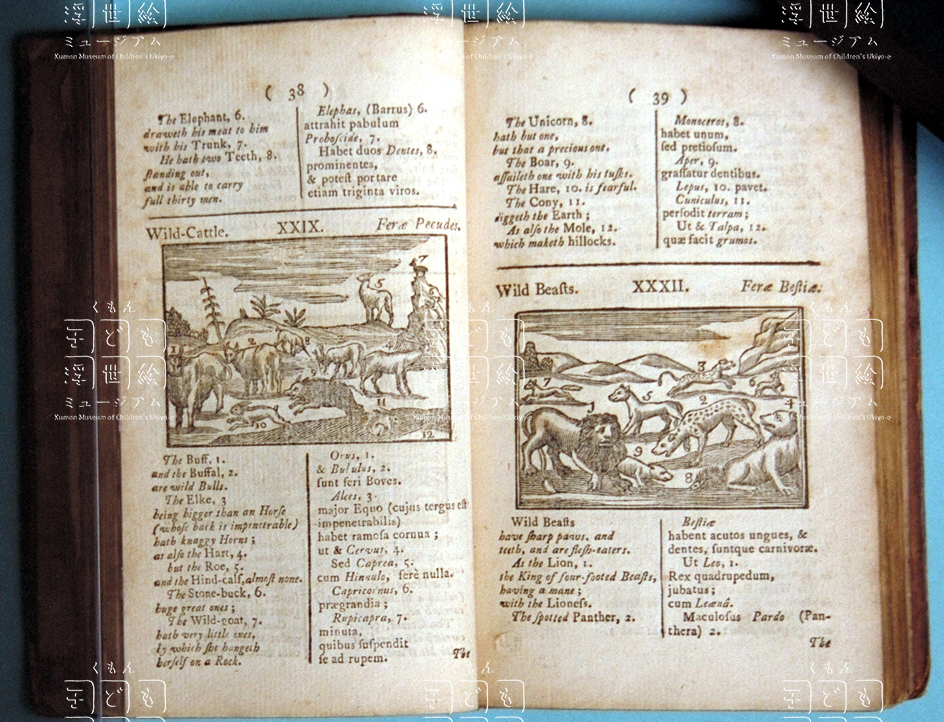 ( 38 )
The Elephant, 6.
draweth his meat to him
with his Trunk, 7.
He hath two Teeth, 8.
ſtanding out,
and is able to carry
full thirty men.
Elephas, (Barrus) 6.
attrahit pabulum
Proboſcide, 7.
Habet duos Dentes, 8.
prominentes,
& poteſt portare
etiam triginta viros.
Wild-Cattle. XXIX. Feræ Pecudes.
1
2
8
5
4
7
9
10
11
12
The Buff, 1.
and the Buffal, 2.
are wild Bulls.
The Elke, 3
being bigger than an Horſe
(whoſe back is impenetrable)
hath knaggy Horns ;
as alſo the Hart, 4.
but the Roe, 5.
and the Hind-calf, almoſt none.
The Stone-buck, 6.
huge great ones ;
The Wild-goat, 7.
hath very little ones,
by which ſhe hangeth
herſelf on a Rock.
Orus, 1.
& Bubulus, 2.
ſunt feri Boves.
Alces, 3.
major Equo (cujus tergus eſt
impenetrabilis)
habet ramoſa cornua ;
ut & Cervus, 4.
Sed Caprea, 5.
cum Hinnulo, ferè nulla.
Capricornus, 6.
prægrandia ;
Rupicapra, 7.
minuta,
quibus ſuſpendit
ſe ad rupem.
The
( 39 )
The Unicorn, 8.
hath but one,
but that a precious one.
The Boar, 9.
aſſaileth one with his tuſks.
The Hare, 10. is fearful.
The Cony, 11.
diggeth the Earth ;
As alſo the Mole, 12.
which maketh hillocks.
Monoceros, 8.
habet unum,
ſed pretioſum.
Aper, 9.
graſſatur dentibus.
Lepus, 10. pavet.
Cuniculus, 11.
perfodit terram ;
Ut & Talpa, 12.
quæ facit grumos.
Wild Beaſts. XXXII. Feræ Beſtiæ.
3
7
5
6
2
4
1
9
8
Wild Beaſts
have ſharp paws, and
teeth, and are fleſh-eaters.
As the Lion, 1.
the King of four-footed Beaſts,
having a mane ;
with the Lioneſs.
The ſpotted Panther, 2.
Beſtiæ
habent acutos ungues, &
dentes, ſuntque carnivoræ.
Ut Leo, 1.
Rex quadrupedum,
jubatus ;
cum Leænâ.
Maculoſus Pardo (Pan-
thera) 2.
The
くもん
子ども
浮世絵
ミュージアム
Kumon Museum of Children's Ukiyo-e